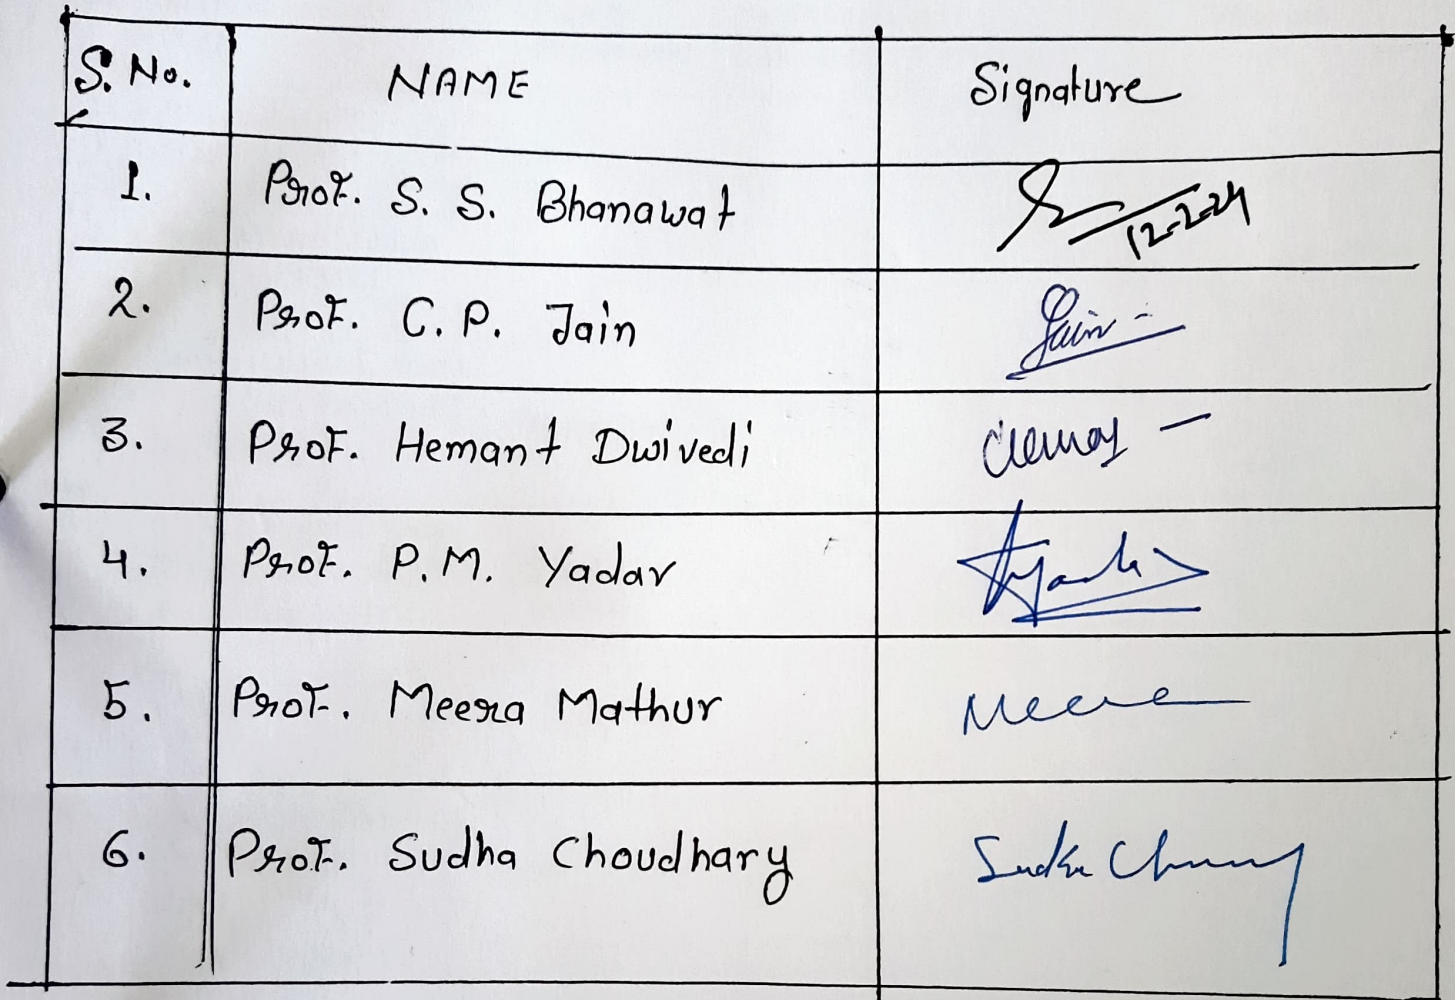 S. No. NAME Signature
1. Prof. S. S. Bhanawat 12-2-24
2. Prof. C. P. Jain Jain
3. Prof. Hemant Dwivedi
4. Prof. P. M. Yadav
5. Prof. Meera Mathur Meera
6. Prof. Sudha Choudhary Sudha